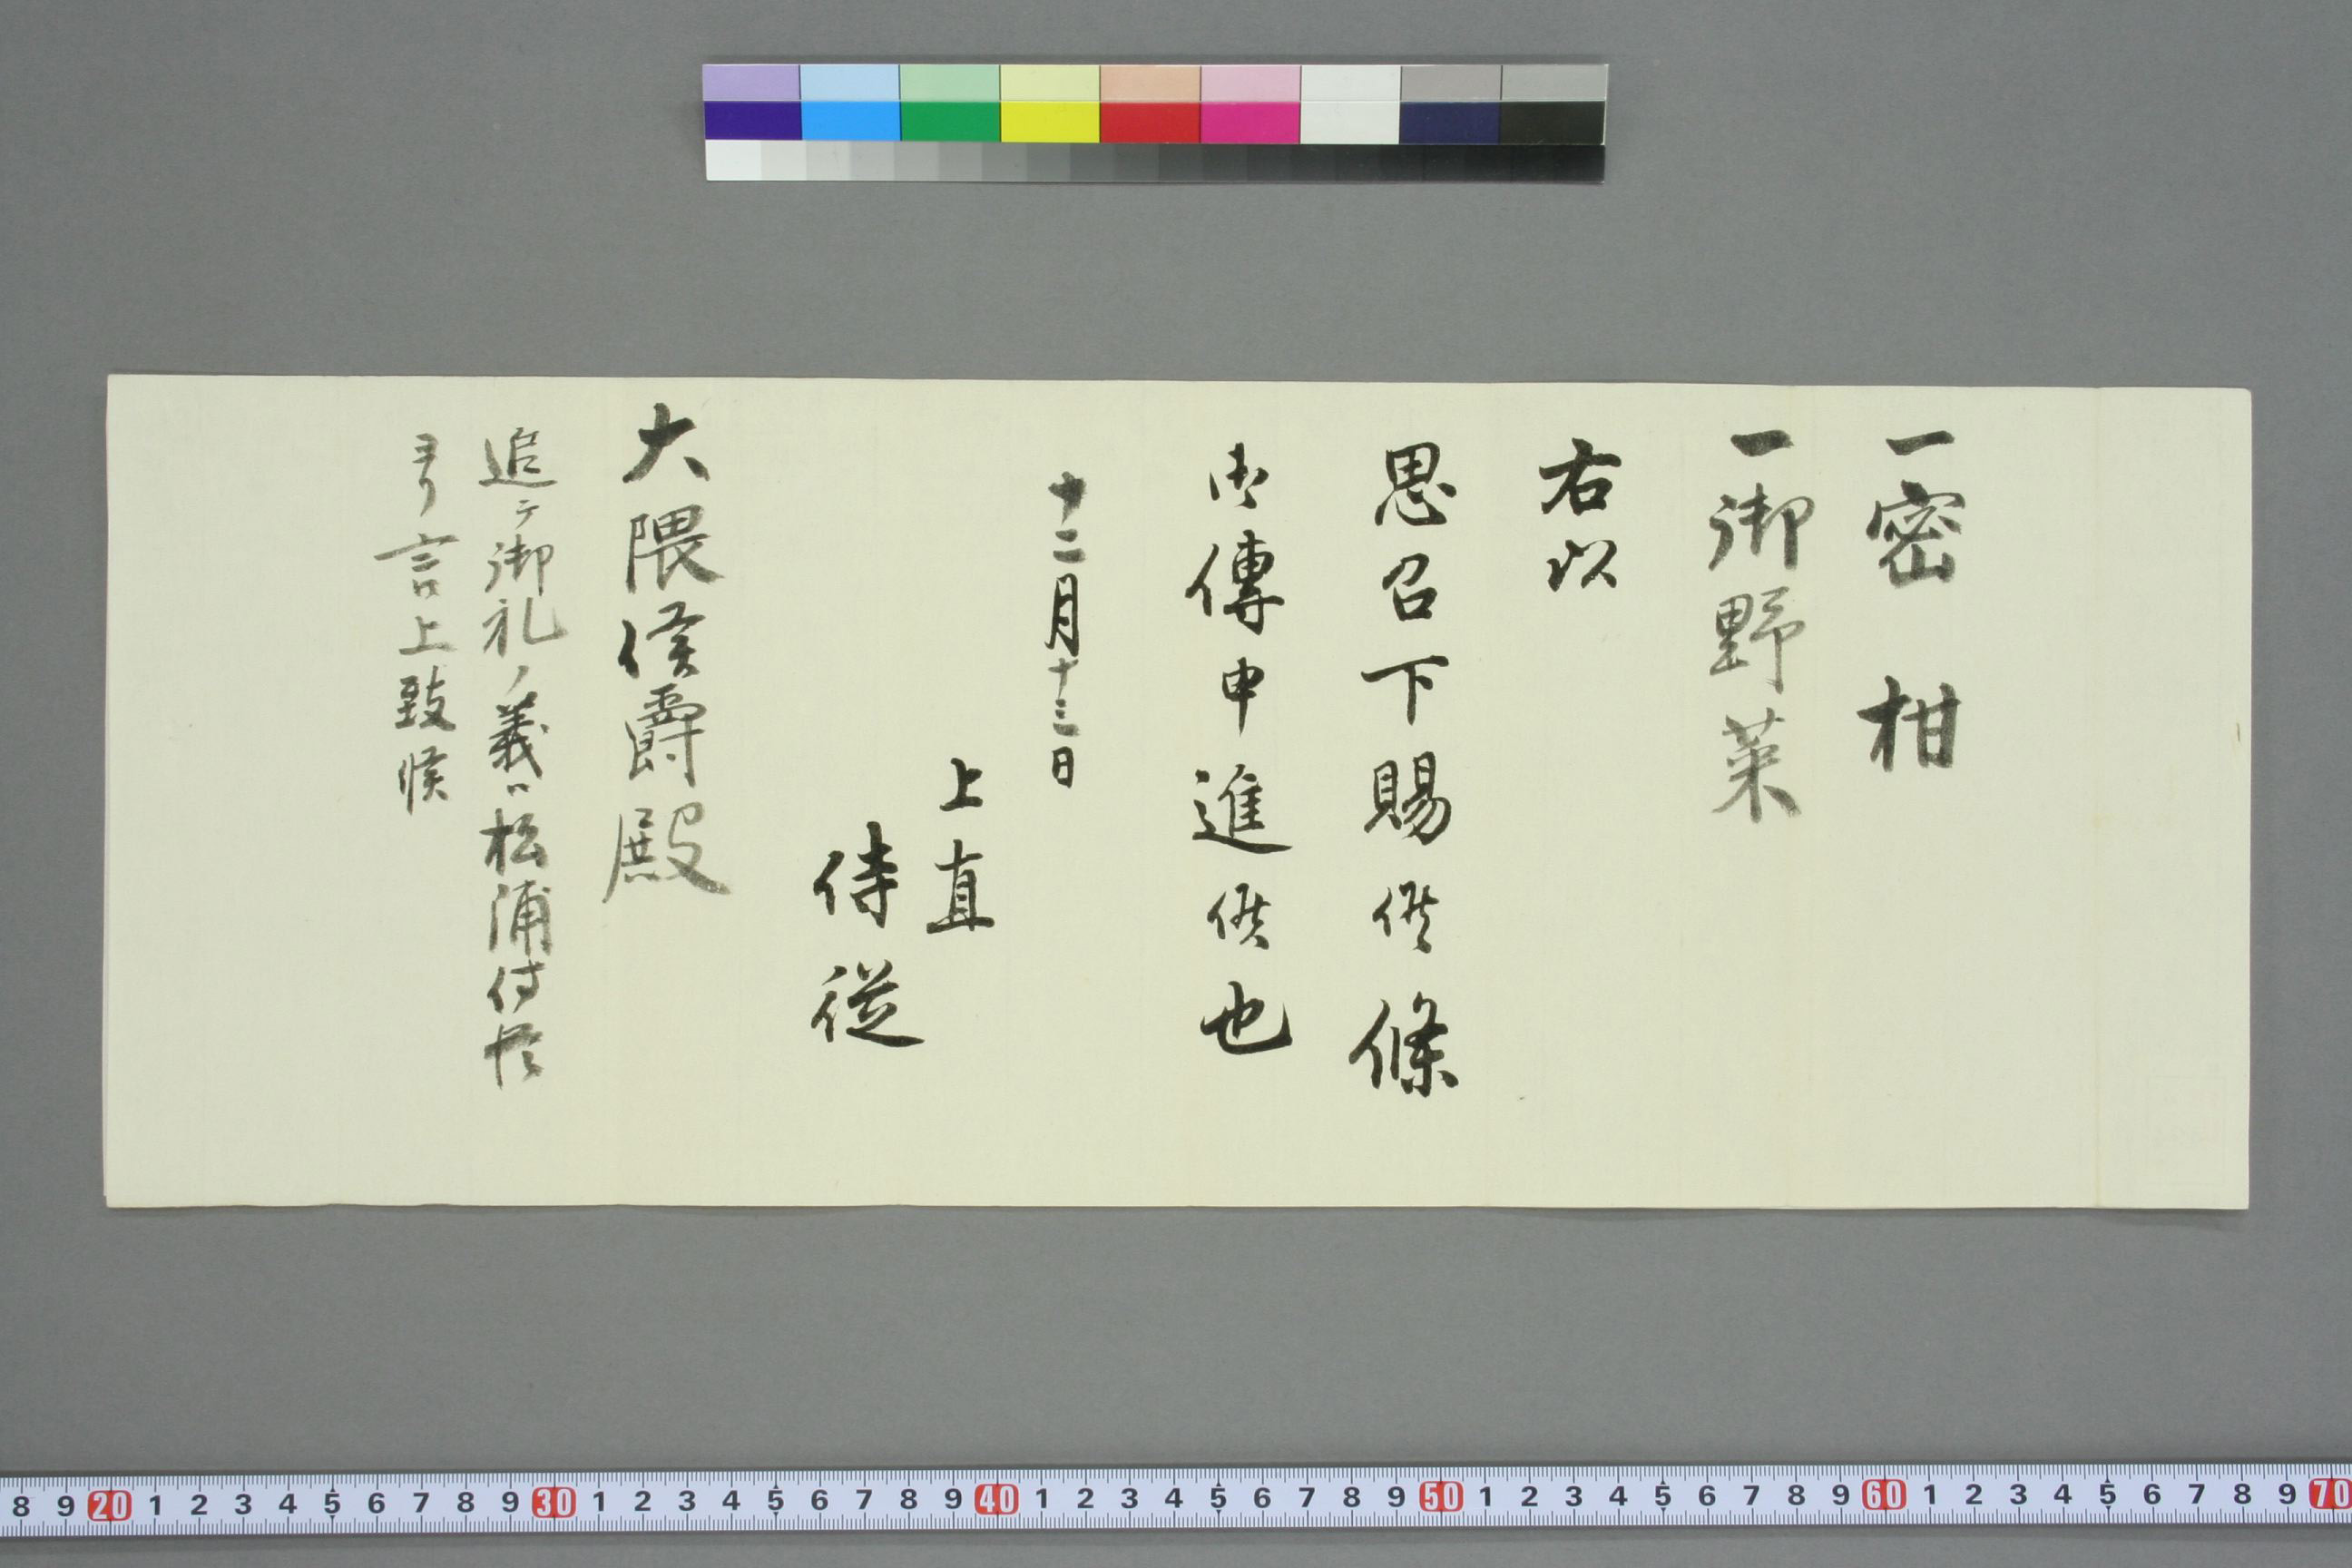 一密柑
一御野菜
右以
思召下賜候條
御傳申進候也
十二月十三日
上直
侍従
大隈侯爵殿
追テ御礼ノ義ハ松浦侍従
ヨリ言上致候
8 9 20 1 2 3 4 5 6 7 8 9 30 1 2 3 4 5 6 7 8 9 40 1 2 3 4 5 6 7 8 9 50 1 2 3 4 5 6 7 8 9 60 1 2 3 4 5 6 7 8 9 70